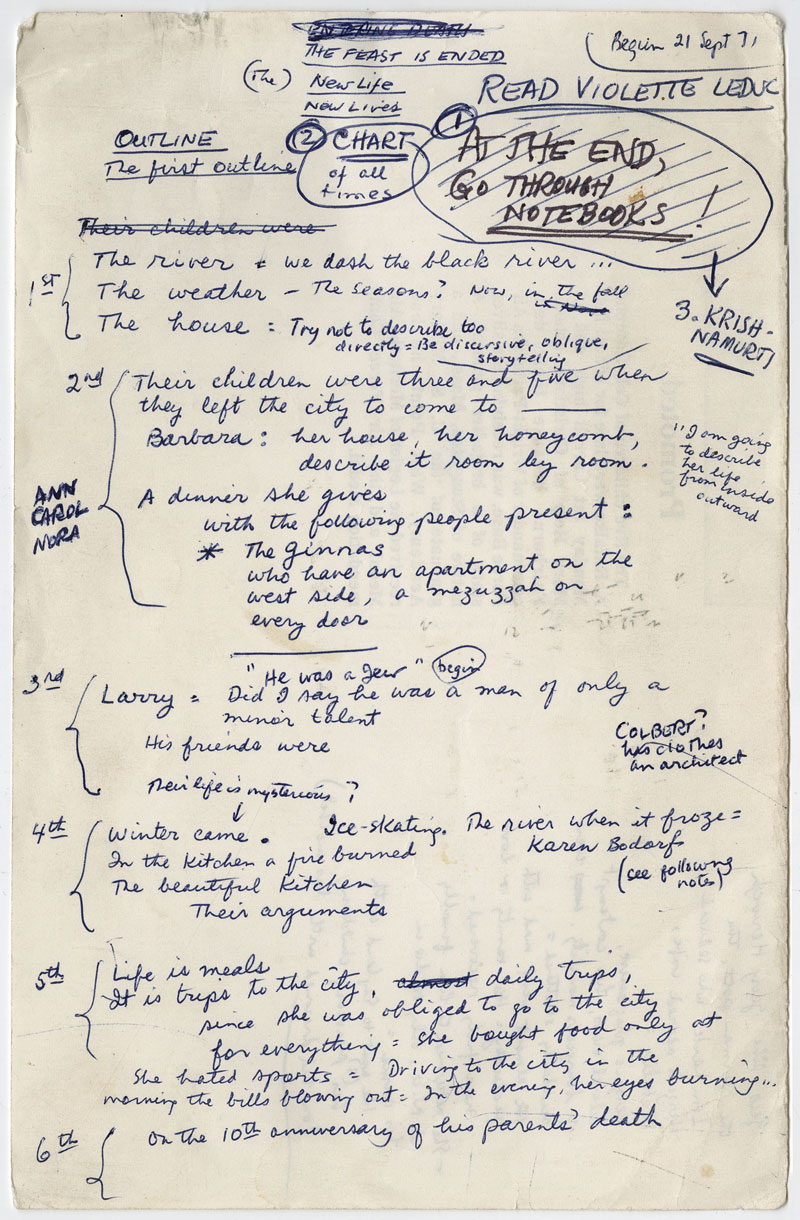 THE FEAST IS ENDED
(The) New Life
New Lives
Begun 21 Sept 71
READ VIOLETTE LEDUC
OUTLINE
The first outline
② CHART
of all
times
① AT THE END,
GO THROUGH
NOTEBOOKS!
3. KRISH-
NAMURTI
Their children were
1st
The river = we dash the black river ...
The weather – The seasons? Now, in the fall
The house = Try not to describe too
directly = Be discursive, oblique,
storytelling
2nd
Their children were three and five when
they left the city to come to ____
Barbara: her house, her honeycomb,
describe it room by room.
"I am going
to describe
her life
from inside
outward
ANN
CAROL
NORA
A dinner she gives
with the following people present:
* The Ginnas
who have an apartment on the
west side, a mezuzzah on
every door
3rd
"He was a Jew" begin
Larry = Did I say he was a man of only a
minor talent
His friends were
COLBERT?
has clothes
an architect
Their life is mysterious?
4th
Winter came. Ice-skating. The river when it froze =
Karen Bodorfs
(see following
notes)
In the kitchen a fire burned
The beautiful kitchen
Their arguments
5th
Life is meals
It is trips to the city, almost daily trips,
since she was obliged to go to the city
for everything = she bought food only at
She hated sports = Driving to the city in the
morning the bills blowing out = In the evening, her eyes burning...
6th
On the 10th anniversary of his parents' death